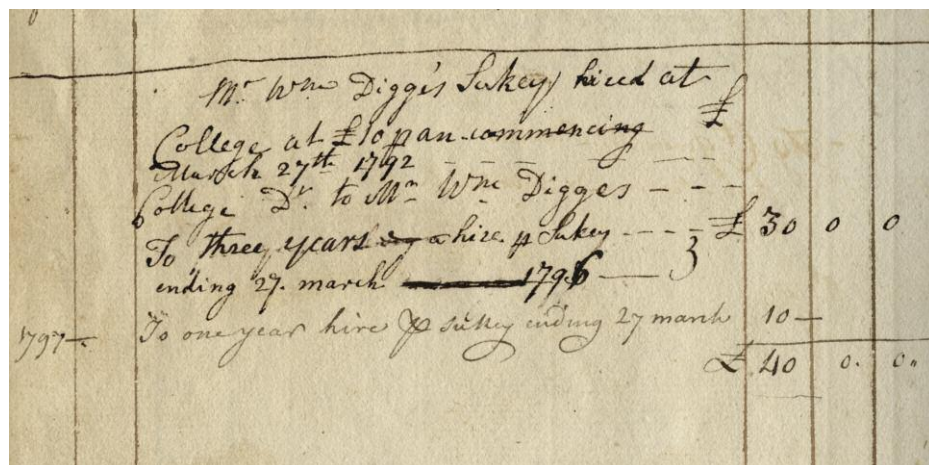 Mr. Wm Digges Sukey hired at
College at £10 p an commencing £
March 27th 1792
College Dr. to Mr Wm Digges
To three years hire of Sukey £ 30 0 0
ending 27. march 1796
1797 To one year hire of sukey ending 27 march 10
£ 40 0. 0.